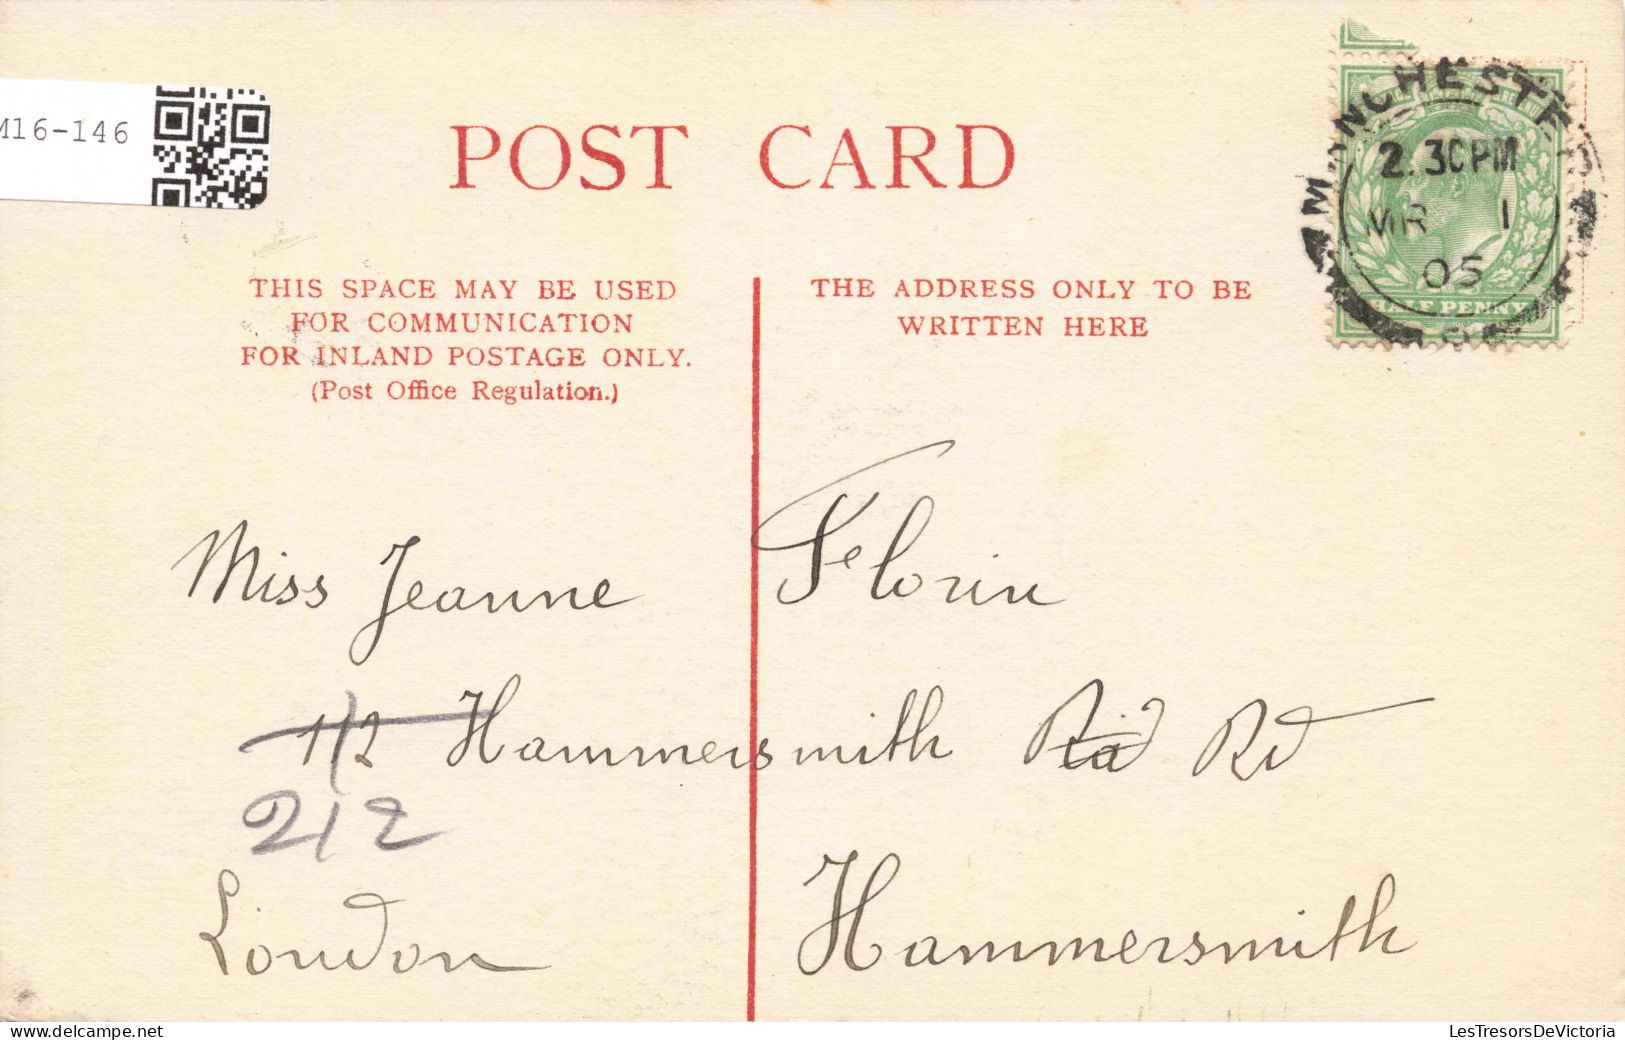 M16-146
POST CARD
THIS SPACE MAY BE USED
FOR COMMUNICATION
FOR INLAND POSTAGE ONLY.
(Post Office Regulation.)
THE ADDRESS ONLY TO BE
WRITTEN HERE
MANCHESTER
2.30PM
MR 1
05
HALF PENNY
Miss Jeanne Florin
1/2 Hammersmith Rd
212
London Hammersmith
LesTresorsDeVictoria